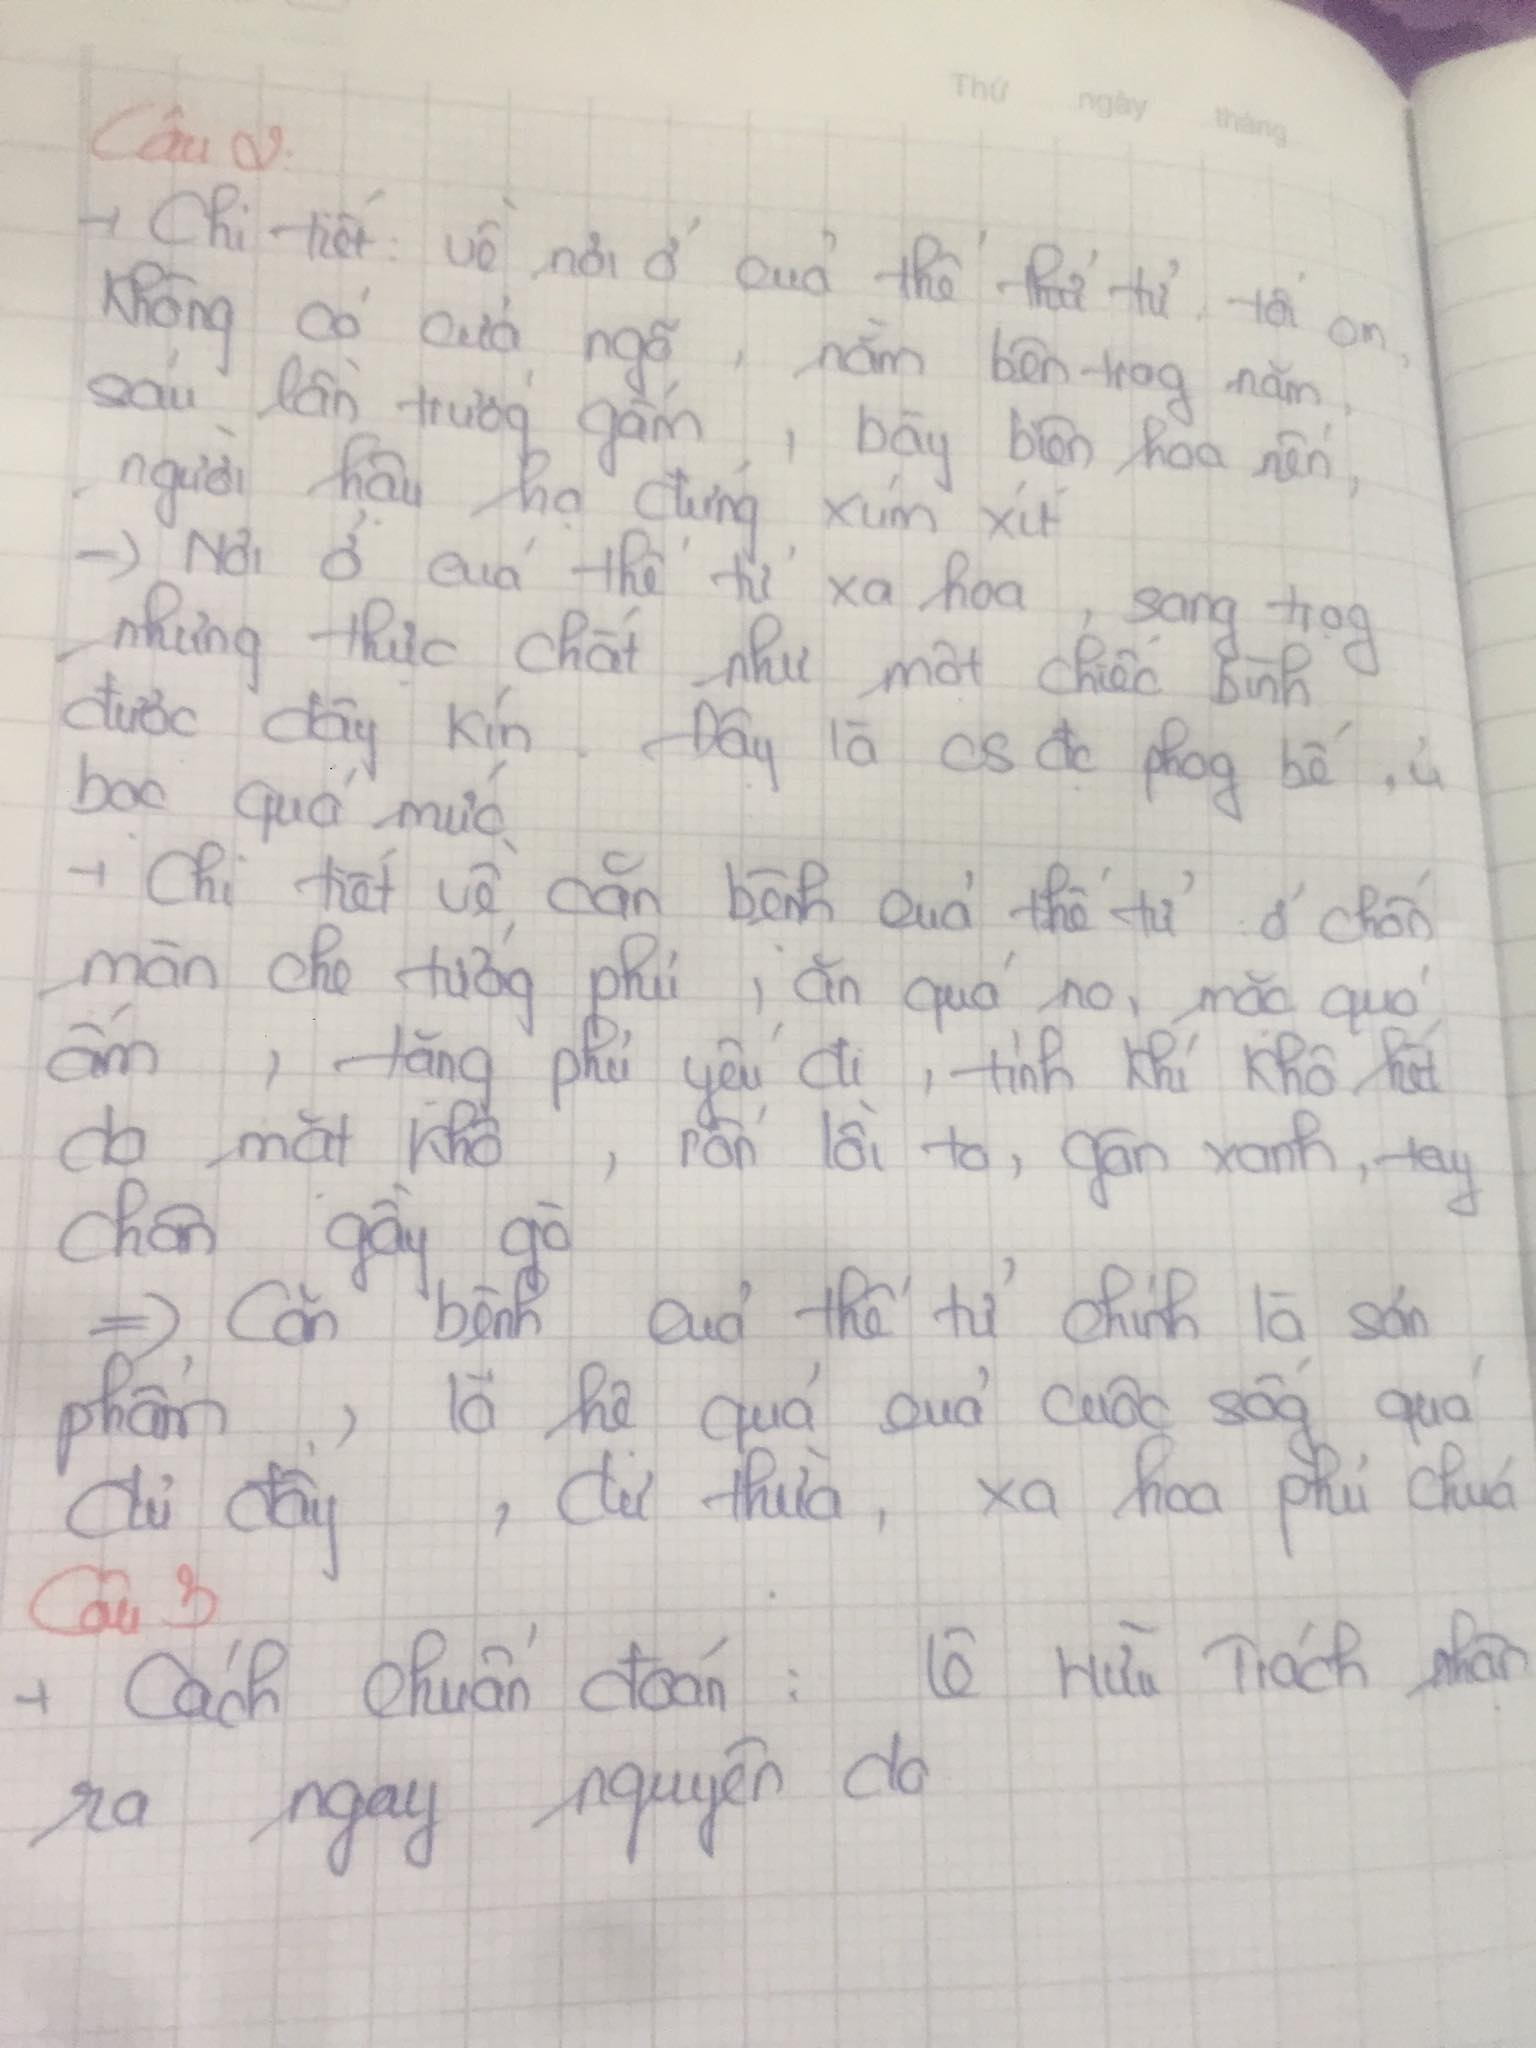 Thứ ngày tháng
Câu 2:
+ Chi tiết: về nơi ở của thế thử tử. tối om,
không có cửa ngõ, nằm bên trog năm,
sáu lần trướng gấm, bày biện hoa nến,
người hầu hạ đứng xúm xít
-> Nơi ở của thế tử xa hoa, sang trọg
nhưng thực chất như một chiếc bình
được đậy kín. Đây là cs đc phog bế, ủ
bọc quá mức
+ Chi tiết về căn bệnh của thế tử ở chốn
màn che trướng phủ, ăn quá no, mặc quá
ấm, tăng phủ yếu đi, tinh khí khô hết
da mặt khô, rốn lồi to, gân xanh, tay
chân gầy gò
=> Căn bệnh của thế tử chính là sản
phẩm, là hệ quả của cuộc sốg quá
đủ đầy, dư thừa, xa hoa phủ chúa
Câu 3
+ Cách chuẩn đoán: Lê Hữu Trách nhận
ra ngay nguyên do